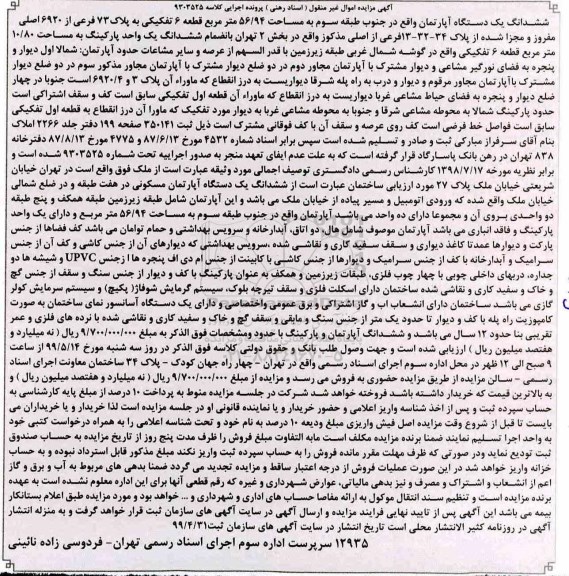 آگهی مزایده اموال غیر منقول ( اسناد رهنی ) پرونده اجرایی کلاسه ۹۳۰۳۵۲۵
ششدانگ یک دستگاه آپارتمان واقع در جنوب طبقه سوم به مساحت ۵۶/۹۴ متر مربع قطعه ۶ تفکیکی به پلاک ۷۳ فرعی از ۶۹۲۰ اصلی
مفروز و مجزا شده از پلاک ۳۴-۳۲-۱۳فرعی از اصلی مذکوز واقع در بخش ۲ تهران بانضمام ششدانگ یک واحد پارکینگ به مساحت ۱۰/۸۰
متر مربع قطعه ۶ تفکیکی واقع در گوشه شمال غربی طبقه زیرزمین با قدر السهم از عرصه و سایر مشاعات حدود آپارتمان: شمالا اول دیوار و
پنجره به فضای نورگیر مشاعی و دیوار مشترک با آپارتمان مجاور دوم در دو ضلع دیوار بانضمام مشترک با آپارتمان مجاور مذکور سوم در دو ضلع دیوار
مشترک باآپارتمان مجاور مرقوم و دیوار و درب به راه پله شرقا دیواریست به درز انقطاع که ماوراء آن پلاک ۳ و ۶۹۲۰/۴ اصلی است جنوبا در چهار
ضلع دیوار و پنجره به فضای حیاط مشاعی غربا دیواریست به درز انقطاع که ماوراء آن قطعه اول تفکیکی سابق است کف و سقف اشتراکی است
حدود پارکینگ شمالا به محوطه مشاعی شرقا و جنوبا به محوطه مشاعی غربا به دیوار مورد تفکیک که ماورا آن درز انقطاع به قطعه اول تفکیکی
سابق است فواصل خط فرضی است کف روی عرصه و سقف آن با کف فوقانی مشترک است ذیل ثبت ۳۵۰۱۴۱ صفحه ۱۹۹ دفتر جلد ۲۲۶۶ املاک
بنام آقای سرفراز مبارکی ثبت و صادر و تسلیم شده است سپس برابر اسناد شماره ۴۵۳۲ مورخ ۸۷/۶/۱۳ و ۴۷۷۵ مورخ ۸۷/۸/۱۳ دفترخانه
۸۳۸ تهران در رهن بانک پاسارگاد قرار گرفته است که به علت عدم ایفای تعهد منجر به صدور اجراییه تحت شماره ۹۳۰۳۵۲۵ شده است و
برابر نظریه مورخه ۱۳۹۸/۷/۱۷ کارشناس رسمی دادگستری توصیف اجمالی مورد وثیقه عبارت است از ملک فوق واقع است در تهران خیابان
شریعتی خیابان ملک پلاک ۲۷ مورد ارزیابی ساختمان عبارت است از ششدانگ یک دستگاه آپارتمان مسکونی در هفت طبقه و در ضلع شمالی
خیابان ملک واقع شده که ورودی اتومبیل و مسیر پیاده از خیابان ملک می باشد و این آپارتمان شامل طبقه زیرزمین طبقه همکف و پنج طبقه
دو واحدی بروی آن و مجموعا دارای ده واحد می باشد آپارتمان واقع در جنوب طبقه سوم به مساحت ۵۶/۹۴ متر مربع و دارای یک واحد
پارکینگ و فاقد انباری می باشد آپارتمان موصوف شامل هال، دو اتاق، آبدارخانه و سرویس بهداشتی و حمام توامان می باشد کف فضاها از جنس
پارکت و دیوارها عمدتا کاغذ دیواری و سقف سفید کاری و نقاشی شده ،سرویس بهداشتی که دیوارهای آن از جنس کاشی و کف آن از جنس
سرامیک و آبدارخانه با کف از جنس سرامیک و دیوارها از جنس کاشی با کابینت از جنس ام دی اف پنجره ها ازجنس UPVC و شیشه ها دو
جداره، دربهای داخلی چوبی با چهار چوب فلزی. طبقات زیرزمین و همکف به عنوان پارکینگ با کف و دیوار از جنس سنگ و سقف از جنس گچ
و خاک و سفید کاری و نقاشی شده ساختمان دارای اسکلت فلزی و سقف تیرچه بلوک، سیستم گرمایش شوفاژ( پکیچ) و سیستم سرمایش کولر
گازی می باشد ساختمان دارای انشعاب اب و گاز اشتراکی و برق عمومی واختصاصی و دارای یک دستگاه آسانسور نمای ساختمان به صورت
کامپوزیت راه پله با کف و دیوار تا حدود یک متر از جنس سنگ و مابقی و سقف گچ و خاک و سفید کاری و نقاشی شده با نرده های فلزی و عمر
تقریبی بنا حدود ۱۲ سال می باشد و ششدانگ آپارتمان و پارکینگ با حدود ومشخصات فوق الذکر به مبلغ ۹/۷۰۰/۰۰۰/۰۰۰ ریال ( نه میلیارد و
هفتصد میلیون ریال ) ارزیابی شده است و جهت وصول طلب بانک و حقوق دولتی کلاسه فوق الذکر در روز سه شنبه مورخ ۹۹/۵/۱۴ از ساعت
۹ صبح الی ۱۲ ظهر در محل اداره سوم اجرای اسناد رسمی واقع در تهران – چهار راه جهان کودک – پلاک ۳۴ ساختمان معاونت اجرای اسناد
رسمی – سالن مزایده از طریق مزایده حضوری به فروش می رسد و مزایده از مبلغ ۹/۷۰۰/۰۰۰/۰۰۰ ریال ( نه میلیارد و هفتصد میلیون ریال ) و
به بالاترین قیمت که خریدار داشته باشد فروخته خواهد شد شرکت در جلسه مزایده منوط به پرداخت ۱۰ درصد از مبلغ پایه کارشناسی به
حساب سپرده ثبت و پس از اخذ شناسه واریز اعلامی و حضور خریدار و یا نماینده قانونی او در جلسه مزایده است لذا خریدار و یا خریداران می
بایست تا قبل از شروع وقت مزایده اصل فیش واریزی مبلغ ودیعه ۱۰ درصد به نام خود و تحت شناسه اعلامی را به همراه درخواست کتبی خود
به واحد اجرا تسلیم نمایند ضمنا برنده مزایده مکلف است مابه التفاوت مبلغ فروش را ظرف مدت پنج روز از تاریخ مزایده به حساب صندوق
ثبت تودیع نماید ودر صورتی که ظرف مهلت مقرر مانده فروش را به حساب سپرده ثبت واریز نکند مبلغ مذکور قابل استرداد نبوده و به حساب
خزانه واریز خواهد شد در این صورت عملیات فروش از درجه اعتبار ساقط و مزایده تجدید می گردد ضمنا بدهی های مربوط به آب و برق و گاز
اعم از انشعاب و اشتراک و مصرف و نیز بدهی مالیاتی، عوارض شهرداری و غیره که رقم قطعی آنها برای این اداره معلوم نشده است به عهده
برنده مزایده است و تنظیم سند انتقال موکول به ارائه مفاصا حساب های اداری و شهرداری و ... خواهد بود و مورد مزایده طبق اعلام بستانکار
بیمه می باشد این آگهی پس از تایید نهایی فرایند مزایده و ارسال آگهی در سایت آگهی های سازمان ثبت قرار خواهد گرفت و به منزله انتشار
آگهی در روزنامه کثیر الانتشار محلی است تاریخ انتشار در سایت آگهی های سازمان ثبت۹۹/۴/۳۱
۱۲۹۳۵ سرپرست اداره سوم اجرای اسناد رسمی تهران- فردوسی زاده نائینی